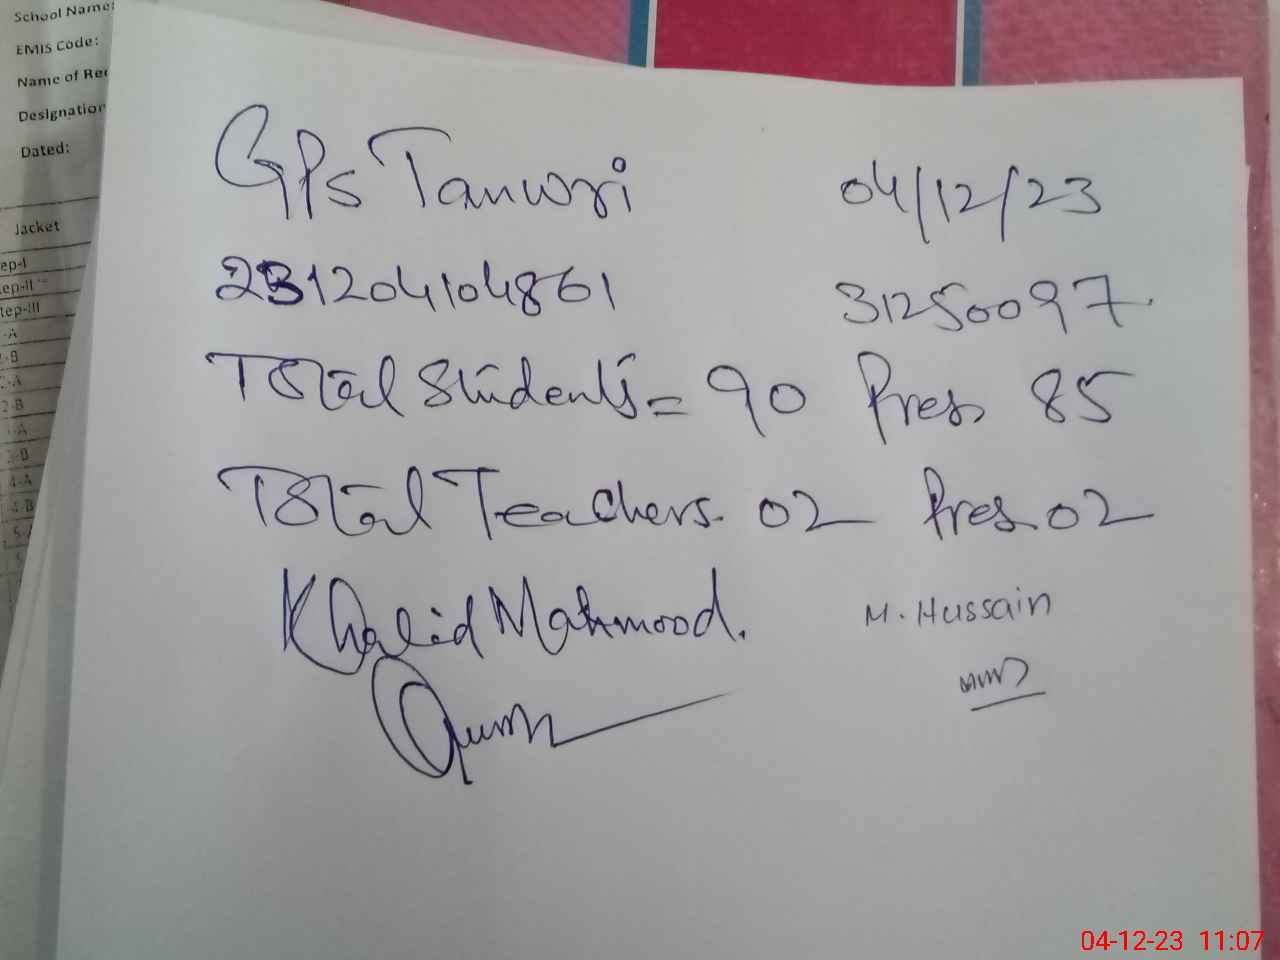 School Name:
EMIS Code:
Name of
Designation
Dated:
Jacket
GPS Tanwri 04/12/23
231204104861 31250097
Total Students = 90 Pres. 85
Total Teachers. 02 Pres. 02
Khalid Mahmood. M. Hussain
04-12-23 11:07